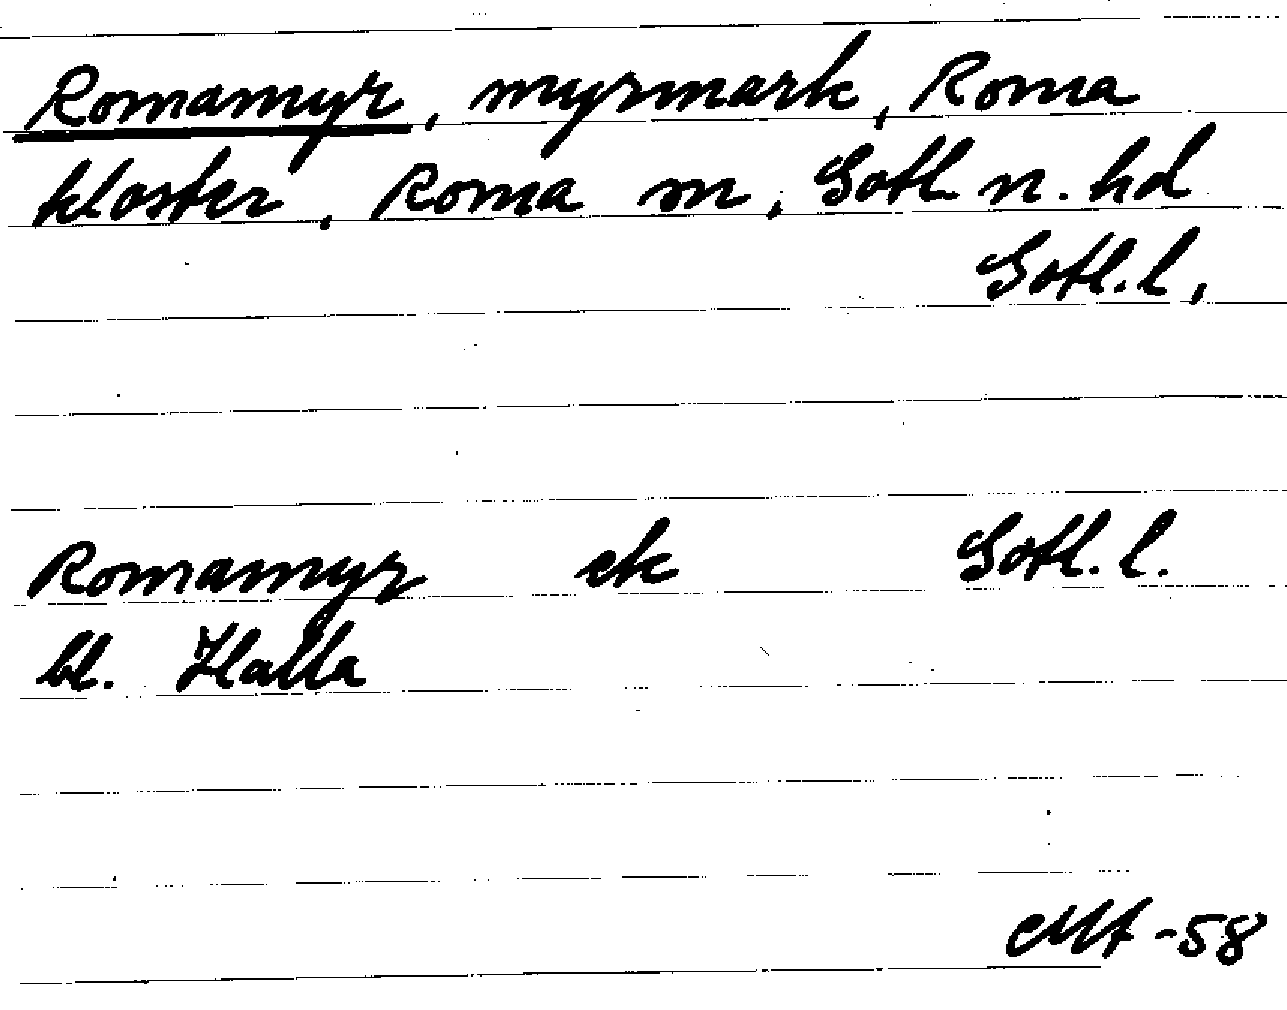 Romamyr, myrmark, Roma
kloster, Roma sn, Gotl. n. hd
Gotl. l,
Romamyr ek Gotl. l.
bl. Halla
-58